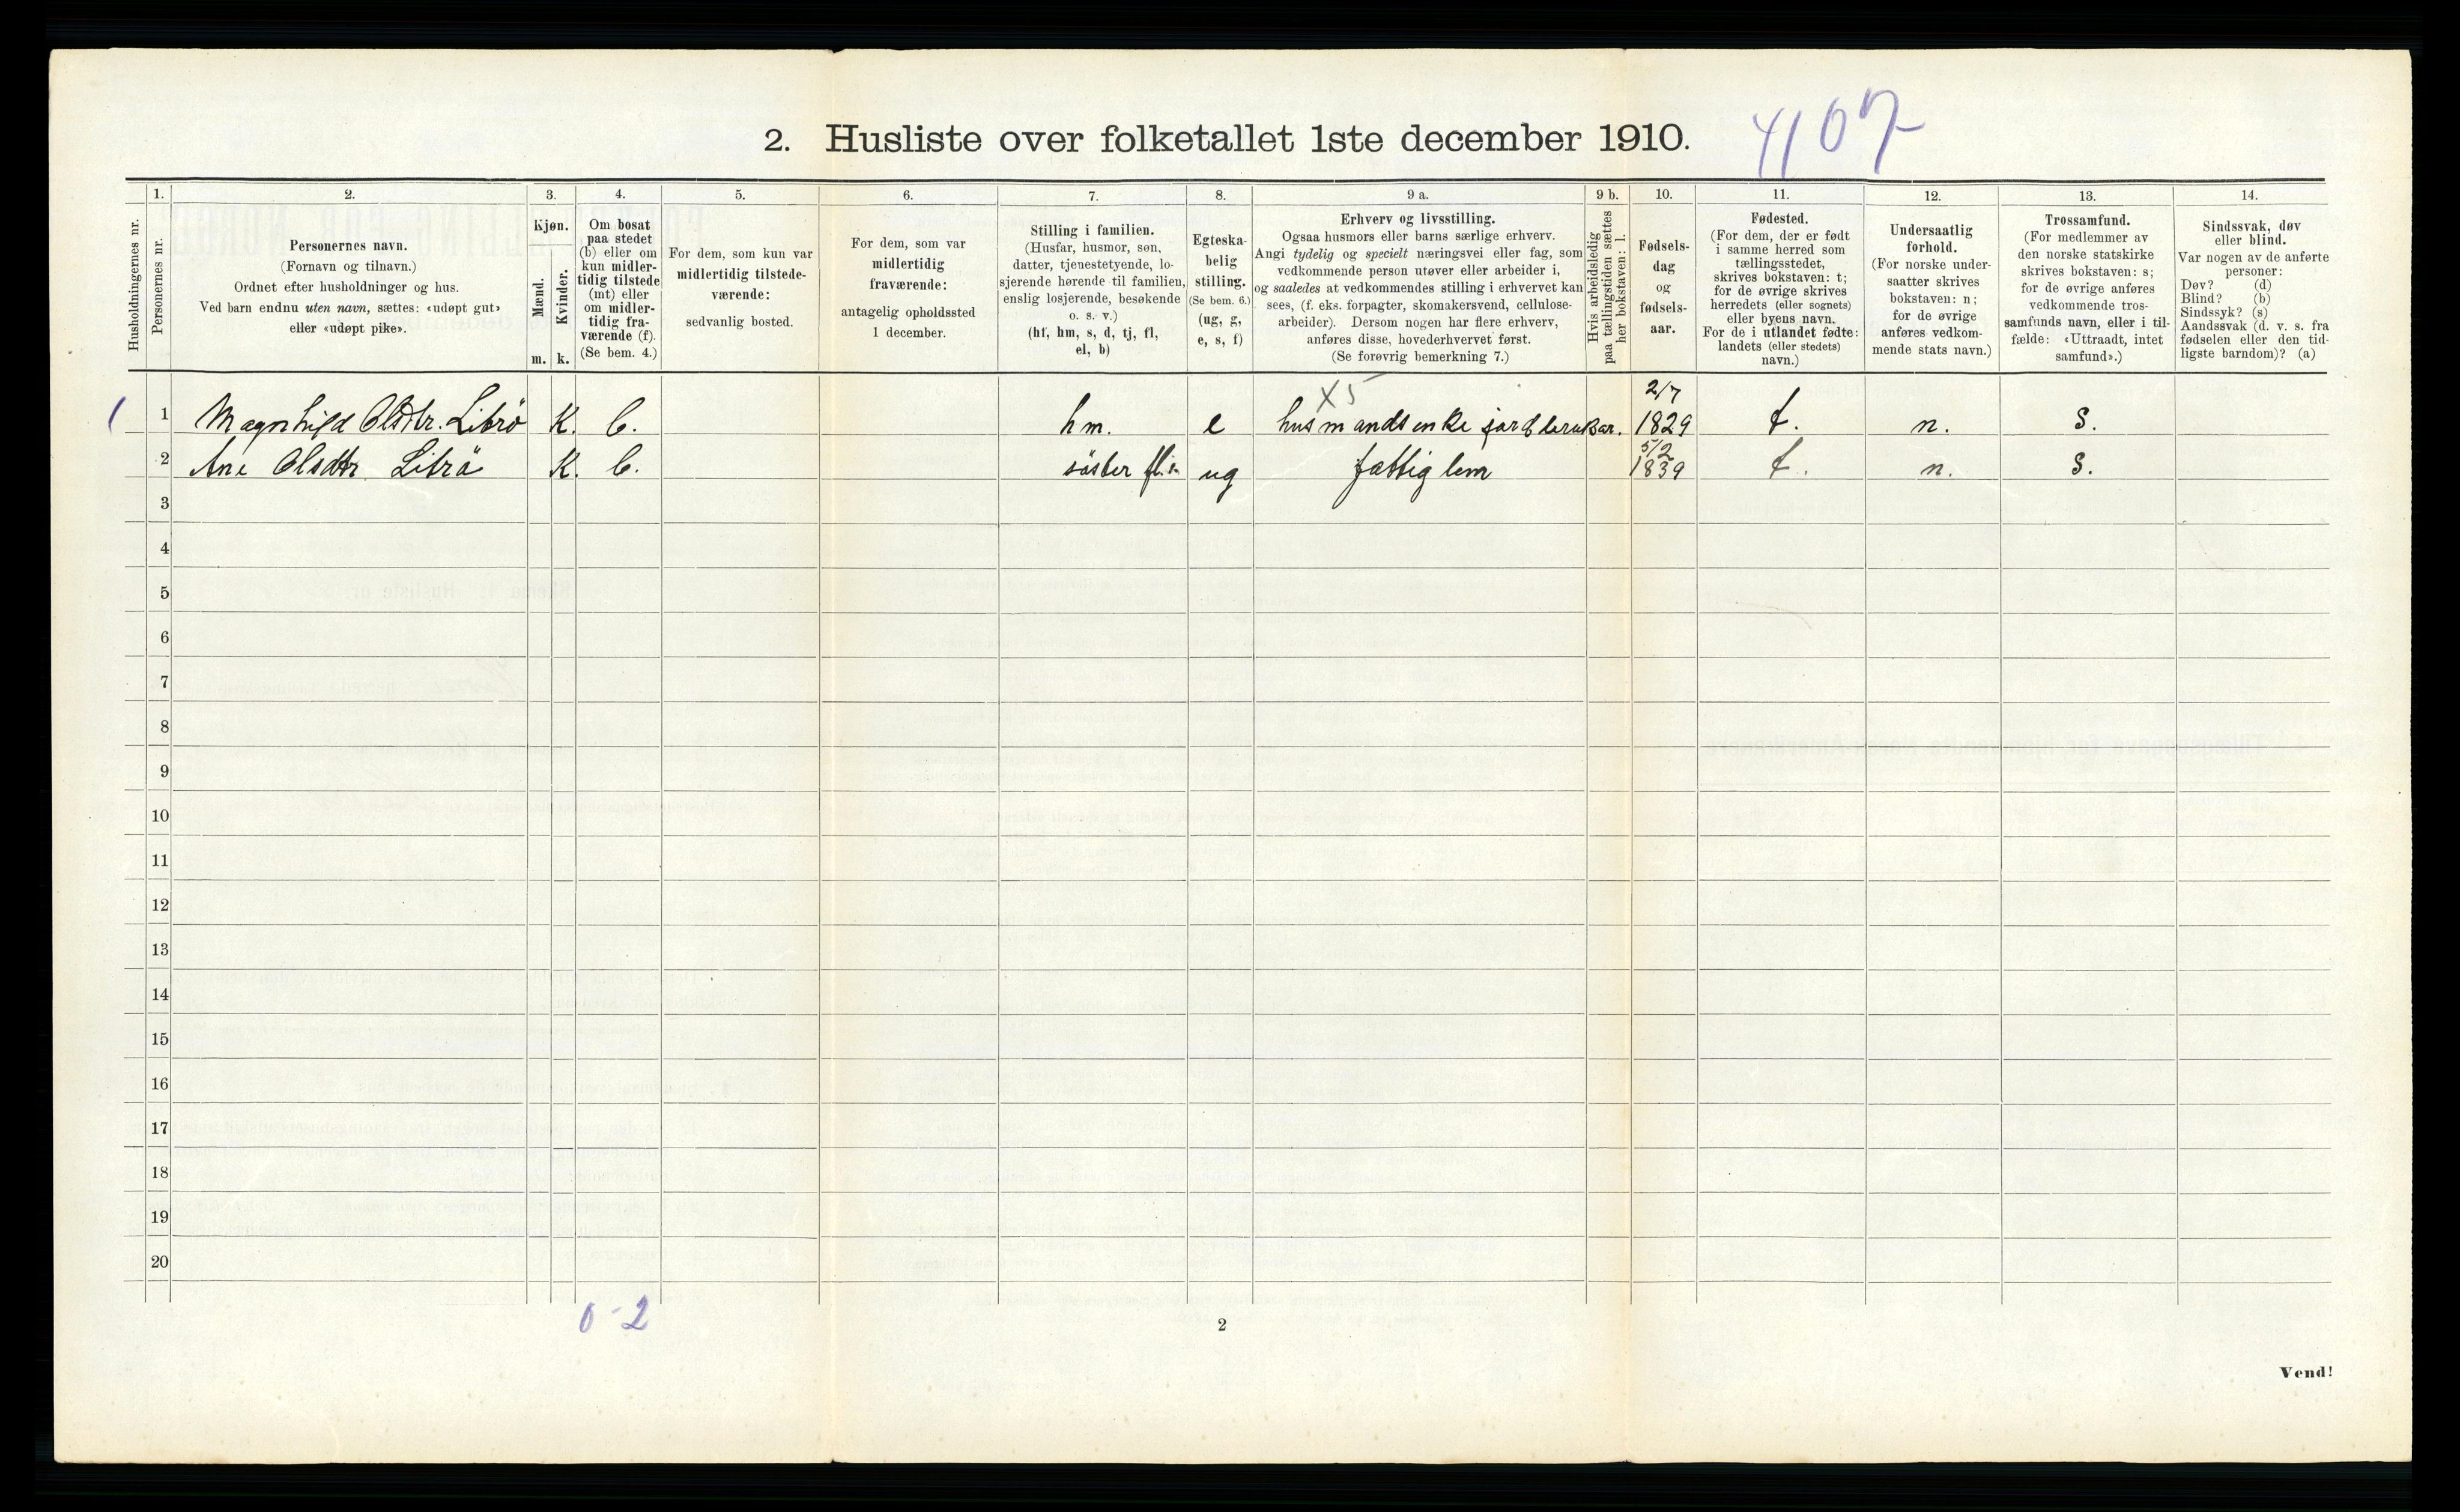 2. Husliste over folketallet 1ste december 1910.
4107
Husholdningernes nr.
1.
Personernes nr.
2.
Personernes navn.
(Fornavn og tilnavn.)
Ordnet efter husholdninger og hus.
Ved barn endnu uten navn, sættes: «udøpt gut»
eller «udøpt pike».
3.
Kjøn.
Mænd.
Kvinder.
m. k.
4.
Om bosat
paa stedet
(b) eller om
kun midler-
tidig tilstede
(mt) eller
om midler-
tidig fra-
værende (f).
(Se bem. 4.)
5.
For dem, som kun var
midlertidig tilstede-
værende:
sedvanlig bosted.
6.
For dem, som var
midlertidig
fraværende:
antagelig opholdssted
1 december.
7.
Stilling i familien.
(Husfar, husmor, søn,
datter, tjenestetyende, lo-
sjerende hørende til familien,
enslig losjerende, besøkende
o. s. v.)
(hf, hm, s, d, tj, fl,
el, b)
8.
Egteska-
belig
stilling.
(Se bem. 6.)
(ug, g,
e, s, f)
9 a.
Erhverv og livsstilling.
Ogsaa husmors eller barns særlige erhverv.
Angi tydelig og specielt næringsvei eller fag, som
vedkommende person utøver eller arbeider i,
og saaledes at vedkommendes stilling i erhvervet kan
sees, (f. eks. forpagter, skomakersvend, cellulose-
arbeider). Dersom nogen har flere erhverv,
anføres disse, hovederhvervet først.
(Se forøvrig bemerkning 7.)
9 b.
Hvis arbeidsledig
paa tællingstiden sættes
her bokstaven: l.
10.
Fødsels-
dag
og
fødsels-
aar.
11.
Fødested.
(For dem, der er født
i samme herred som
tællingsstedet,
skrives bokstaven: t;
for de øvrige skrives
herredets (eller sognets)
eller byens navn.
For de i utlandet fødte:
landets (eller stedets)
navn.)
12.
Undersaatlig
forhold.
(For norske under-
saatter skrives
bokstaven: n;
for de øvrige
anføres vedkom-
mende stats navn.)
13.
Trossamfund.
(For medlemmer av
den norske statskirke
skrives bokstaven: s;
for de øvrige anføres
vedkommende tros-
samfunds navn, eller i til-
fælde: «Uttraadt, intet
samfund».)
14.
Sindssvak, døv
eller blind.
Var nogen av de anførte
personer:
Døv? (d)
Blind? (b)
Sindssyk? (s)
Aandssvak (d. v. s. fra
fødselen eller den tid-
ligste barndom)? (a)
X5 2/7
1 Magnhild Olsdtr. Librö K. b. hm. e husmandsenke jordbrukar. 1829 t. n. s.
5/2
2 Ane Olsdtr Librö K. b. söster fl. ug fattig lem 1839 t. n. s.
3
4
5
6
7
8
9
10
11
12
13
14
15
16
17
18
19
20
0-2
2
Vend!